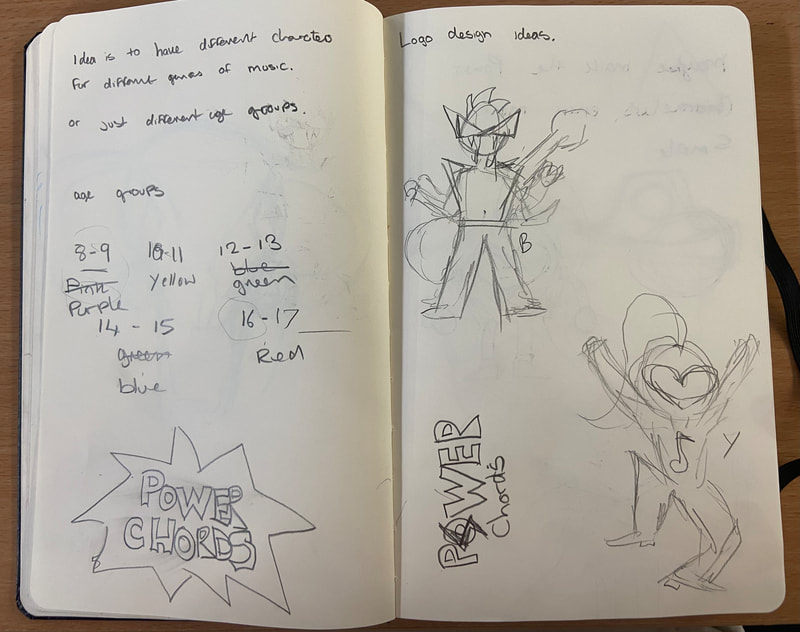 Idea is to have different characters
for different genres of music.
or just different age groups.
age groups
8-9
10-11
12-13
Pink
Yellow
blue
green
Purple
14 - 15
16-17
green
Red
blue
POWER
CHORDS
Logo design ideas.
B
POWER
Chords
Y